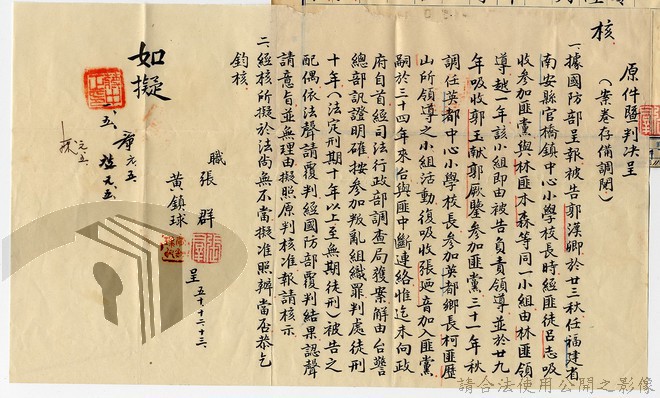 原件暨判決呈
(案卷存備調閱)
核
一、據國防部呈報被告郭漢卿於廿三秋任福建省
南安縣官橋鎮中心小學校長時經匪徒呂志吸
收參加匪黨與林匪木森等同一小組由林匪領
導越一年該小組即由被告負責領導並於廿九
年吸收郭玉献郭厥鑒參加匪黨三十一年秋
調任英都中心小學校長參加英都鄉長柯匪歷
山所領導之小組活動復吸收張廼音加入匪黨
嗣於三十四年來台與匪中斷連絡惟迄未向政
府自首經司法行政部調查局獲案解由台警
總部訊證明確按參加叛亂組織罪判處徒刑
十年(法定刑期十年以上至無期徒刑)被告之
配偶依法聲請覆判經國防部覆判結果認聲
請意旨並無理由擬照原判核准報請核示
二、經核所擬於法尚無不當擬准照辦當否恭乞
鈞核
職 張群
黃鎮球
呈 五十、十二、十三
如擬
蔣中正印
請合法使用公開之影像